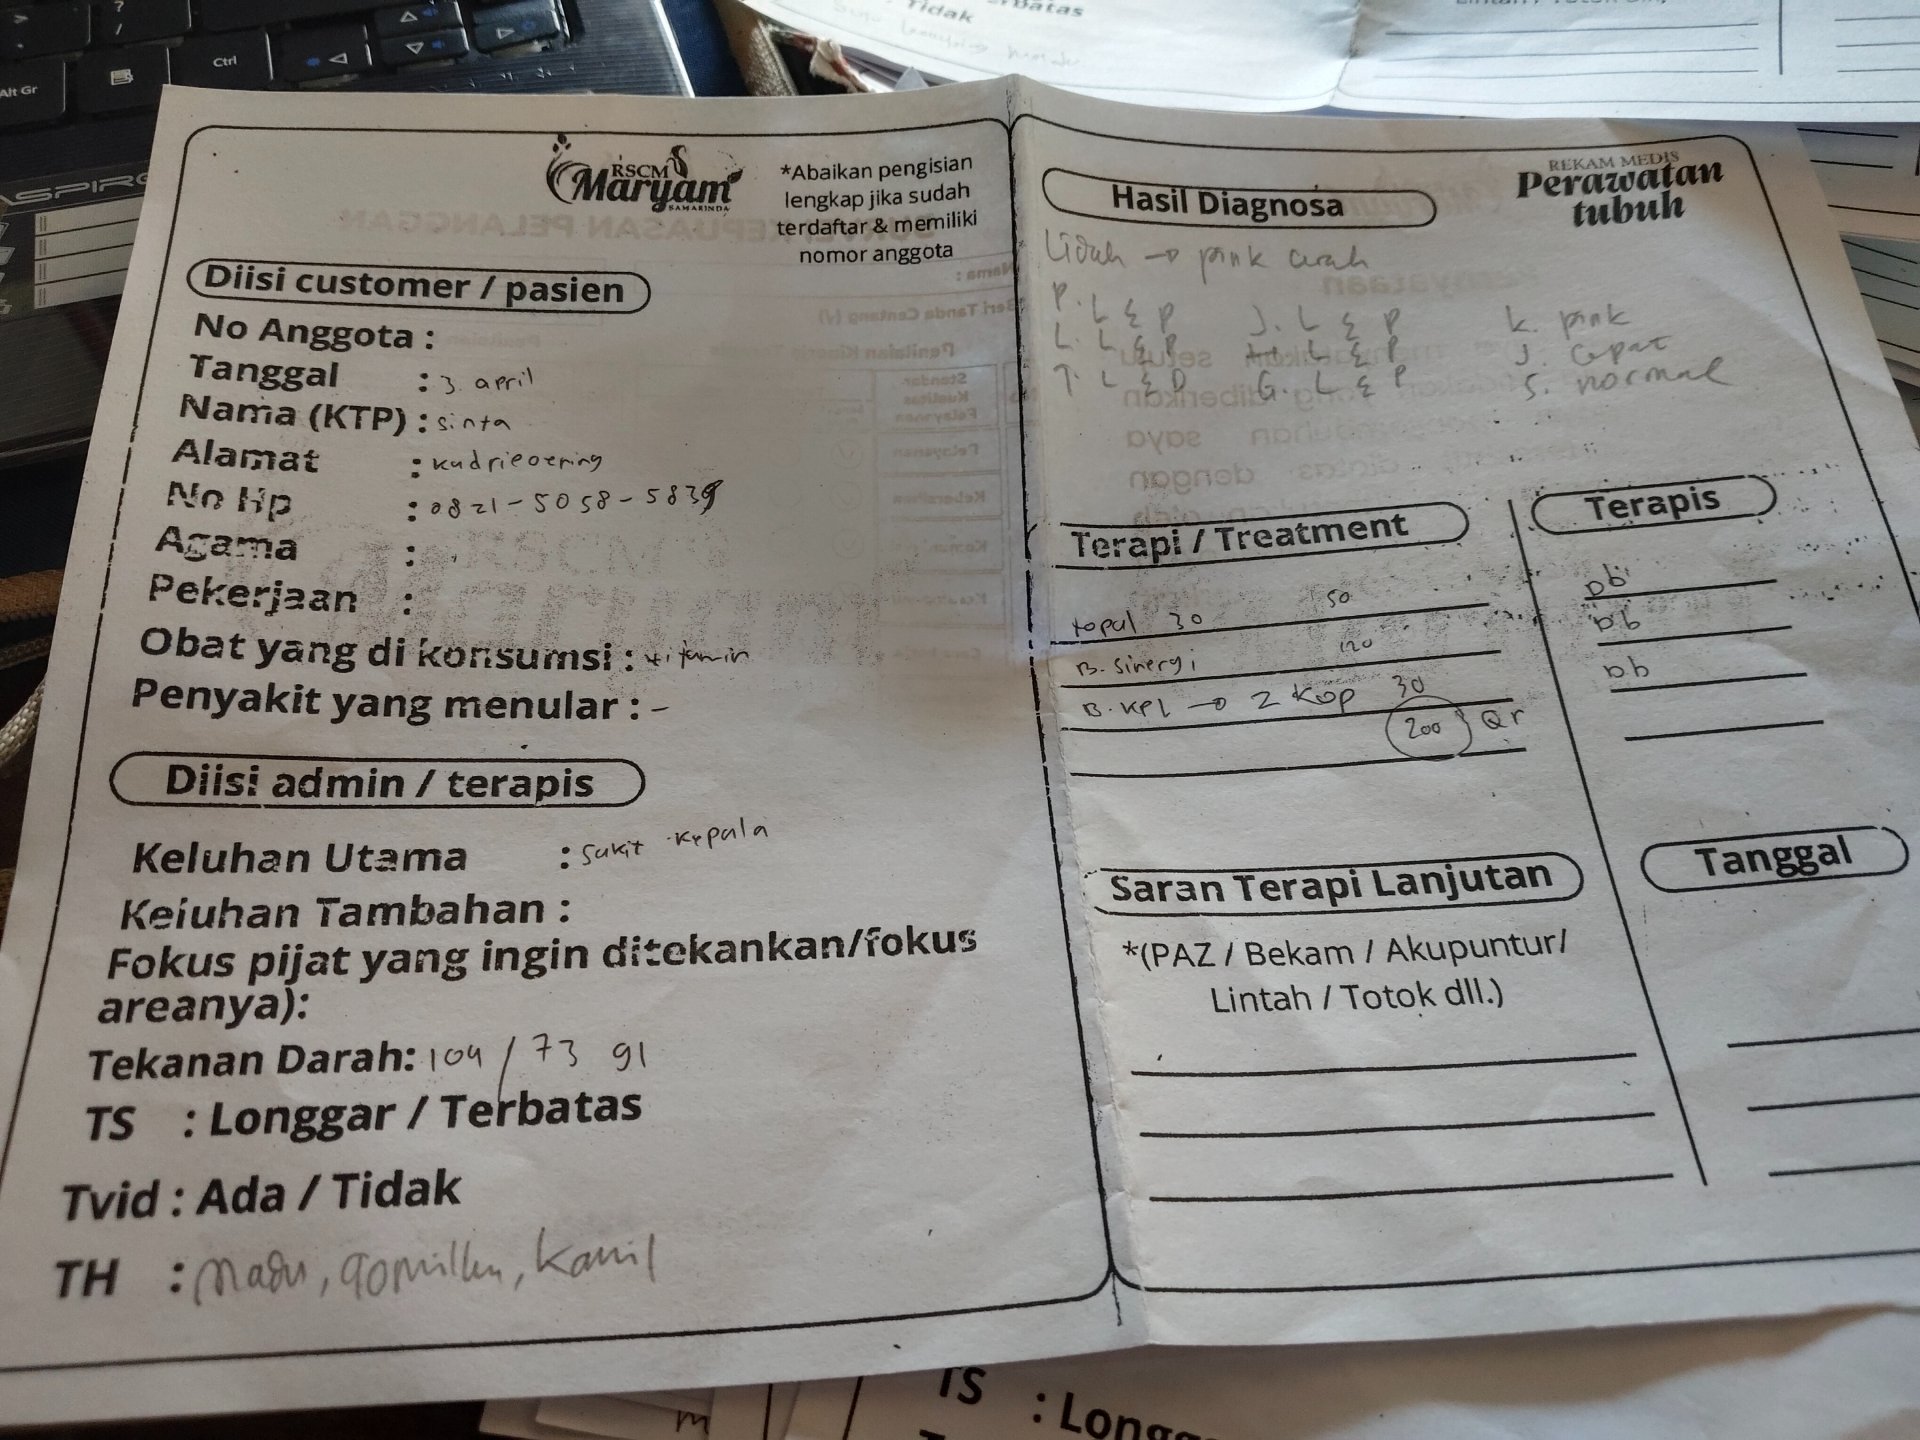 RSCM
Maryam
SAMARINDA
*Abaikan pengisian
lengkap jika sudah
terdaftar & memiliki
nomor anggota
Diisi customer / pasien
No Anggota :
Tanggal : 3. april
Nama (KTP) : sinta
Alamat :
No Hp : 0821-5058-5839
Agama :
Pekerjaan :
Obat yang di konsumsi : vitamin
Penyakit yang menular : -
Diisi admin / terapis
Keluhan Utama : sakit kepala
Keluhan Tambahan :
Fokus pijat yang ingin ditekankan/fokus
areanya):
Tekanan Darah: 104 / 73 91
TS : Longgar / Terbatas
Tvid : Ada / Tidak
TH : madu, kamil
REKAM MEDIS
Perawatan
tubuh
Hasil Diagnosa
Lidah → pink cerah
P. L & P J. L & P K. pink
L. L & P H. L & P J. cepat
T. L & P G. L & P S. normal
Terapi / Treatment
topal 30 50
B. sinergi 120
B. KPL → 2 kop 30
200 } Qr
Terapis
bb
bb
bb
Saran Terapi Lanjutan
*(PAZ / Bekam / Akupuntur/
Lintah / Totok dll.)
Tanggal
Tidak
TS : Longg
Alt Gr
Ctrl